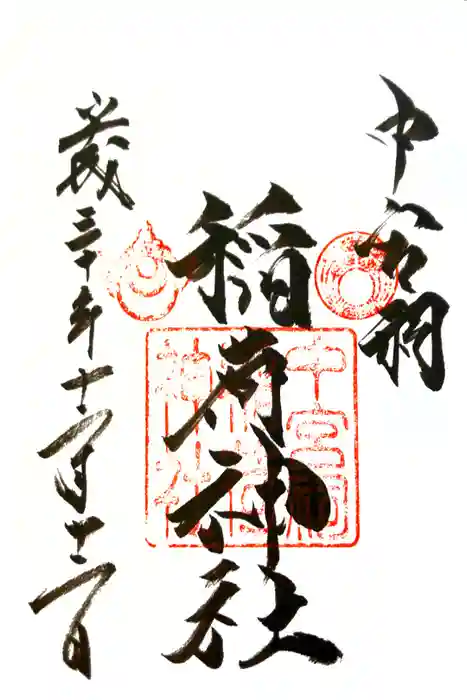 中宮祠
稲荷神社
平成三十年十一月十二日
中宮祠
稲荷
神社